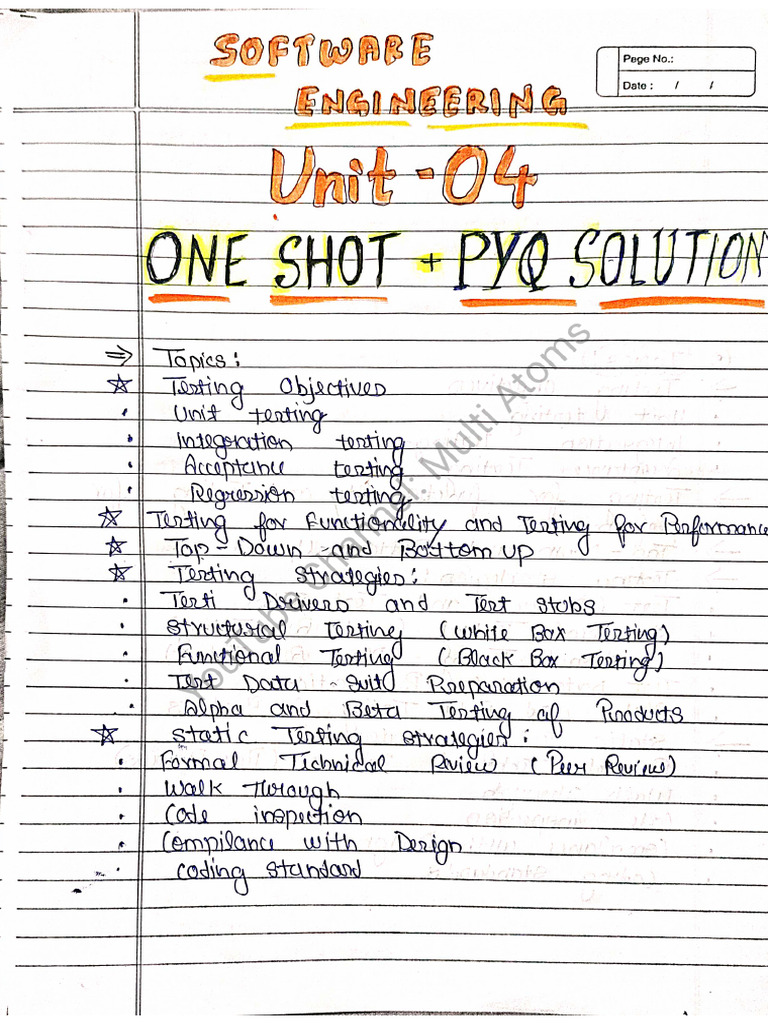 SOFTWARE
ENGINEERING
Page No.:
Date : / /
Unit - 04
ONE SHOT + PYQ SOLUTION
⇒ Topics :
☆ Testing Objectives
• Unit testing
• Integration testing
• Acceptance testing
• Regression testing
☆ Testing for Functionality and Testing for Performance
☆ Top - Down and Bottom up
☆ Testing Strategies :
• Test Drivers and Test Stubs
• Structural Testing (White Box Testing)
• Functional Testing (Black Box Testing)
• Test Data - Suit Preparation
• Alpha and Beta Testing of Products
☆ Static Testing Strategies :
• Formal Technical Review (Peer Review)
• Walk Through
• Code inspection
• Compilance with Design
• Coding Standard
YouTube Channel: Multi Atoms